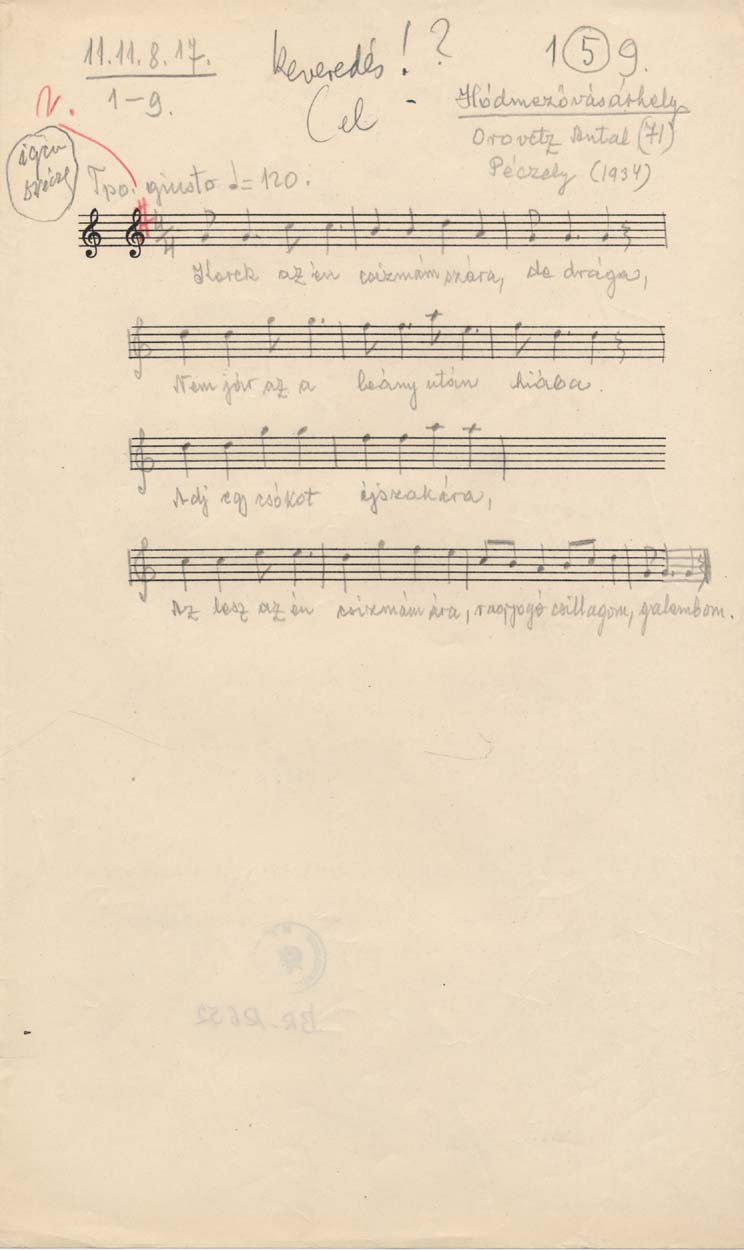 11.11.8.17.
1-9.
keveredés!?
(el -
1 5 9.
Hódmezővásárhely
Orovetz Antal (71)
Péczely (1934)
Tpo. giusto ♩=120.
4/4
Kerek az én csizmám szára, de drága,
Nem jár az a leány után hiába.
Adj egy csókot éjszakára,
Az lesz az én csizmám ára, ragyogó csillagom, galambom.
BR. 12632